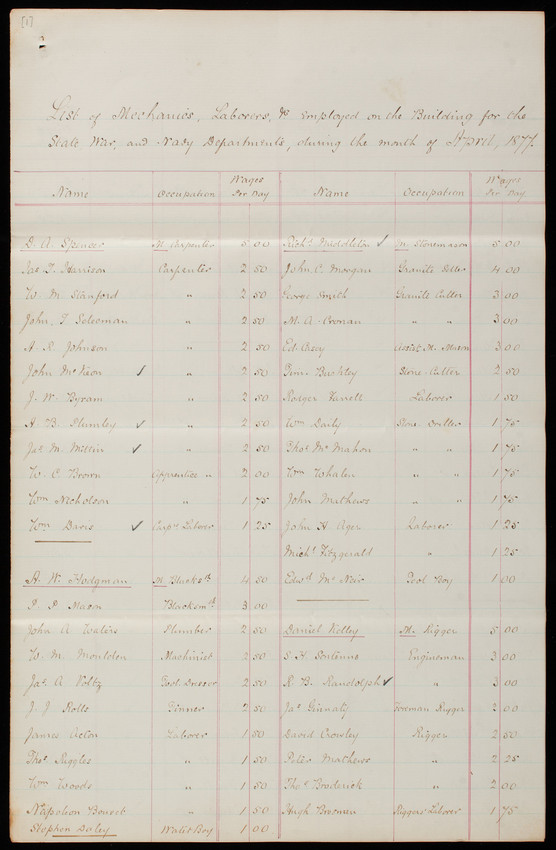 [1]
List of Mechanics, Laborers, &c employed on the Building for the
State War, and Navy Departments, during the month of April, 1877.
Name Occupation Wages Per Day Name Occupation Wages Per Day
D. A. Spencer M. Carpenter 5 00 Richd Middleton ✓ M. Stonemason 5 00
Jas T. Harrison Carpenter 2 50 John C. Morgan Granite Setter 4 00
W. M. Stanford " 2 50 George Smith Granite Cutter 3 00
John T. " 2 50 M. A. Cronan " " 3 00
A. R. Johnson " 2 50 Ed. Assist. M. Mason 3 00
John McKeon ✓ " 2 50 Tim. Buckley Stone Cutter 2 50
J. W. Byram " 2 50 Roeger Farrell Laborer 1 50
A. B. Plumley ✓ " 2 50 Wm Daily Stone Driller 1 75
Jas M. Mittin ✓ " 2 50 Thos McMahon " " 1 75
W. C. Brown Apprentice " 2 00 Wm Whalen " " 1 75
Wm Nicholson " 1 75 John Mathews " " 1 75
Wm Davis ✓ Carprs Laborer 1 25 John H Ager Laborer 1 25
Michl Fitzgerald " 1 25
A. W. Hodgman M. Blacksth 4 50 Edwd McNeir Tool Boy 1 00
P. P. Macon Blacksmth 3 00
John A Waters Plumber 2 50 Daniel Kelley M. Rigger 5 00
W. M. Moulden Machinist 2 50 S. H. Engineman 3 00
Jas A Foltz Tool Dresser 2 50 R. B. Randolph ✓ " 3 00
J. J. Rolls Tinner 2 50 Jas Ginnaty Foreman Rigger 3 00
James Acton Laborer 1 50 David Crowley Rigger 2 50
Thos Riggles " 1 50 Peter Mathews " 2 25
Wm Woods " 1 50 Thos Broderick " 2 00
Napoleon " 1 50 Hugh Brosnan Riggers Laborer 1 75
Stephen Daley Water Boy 1 00